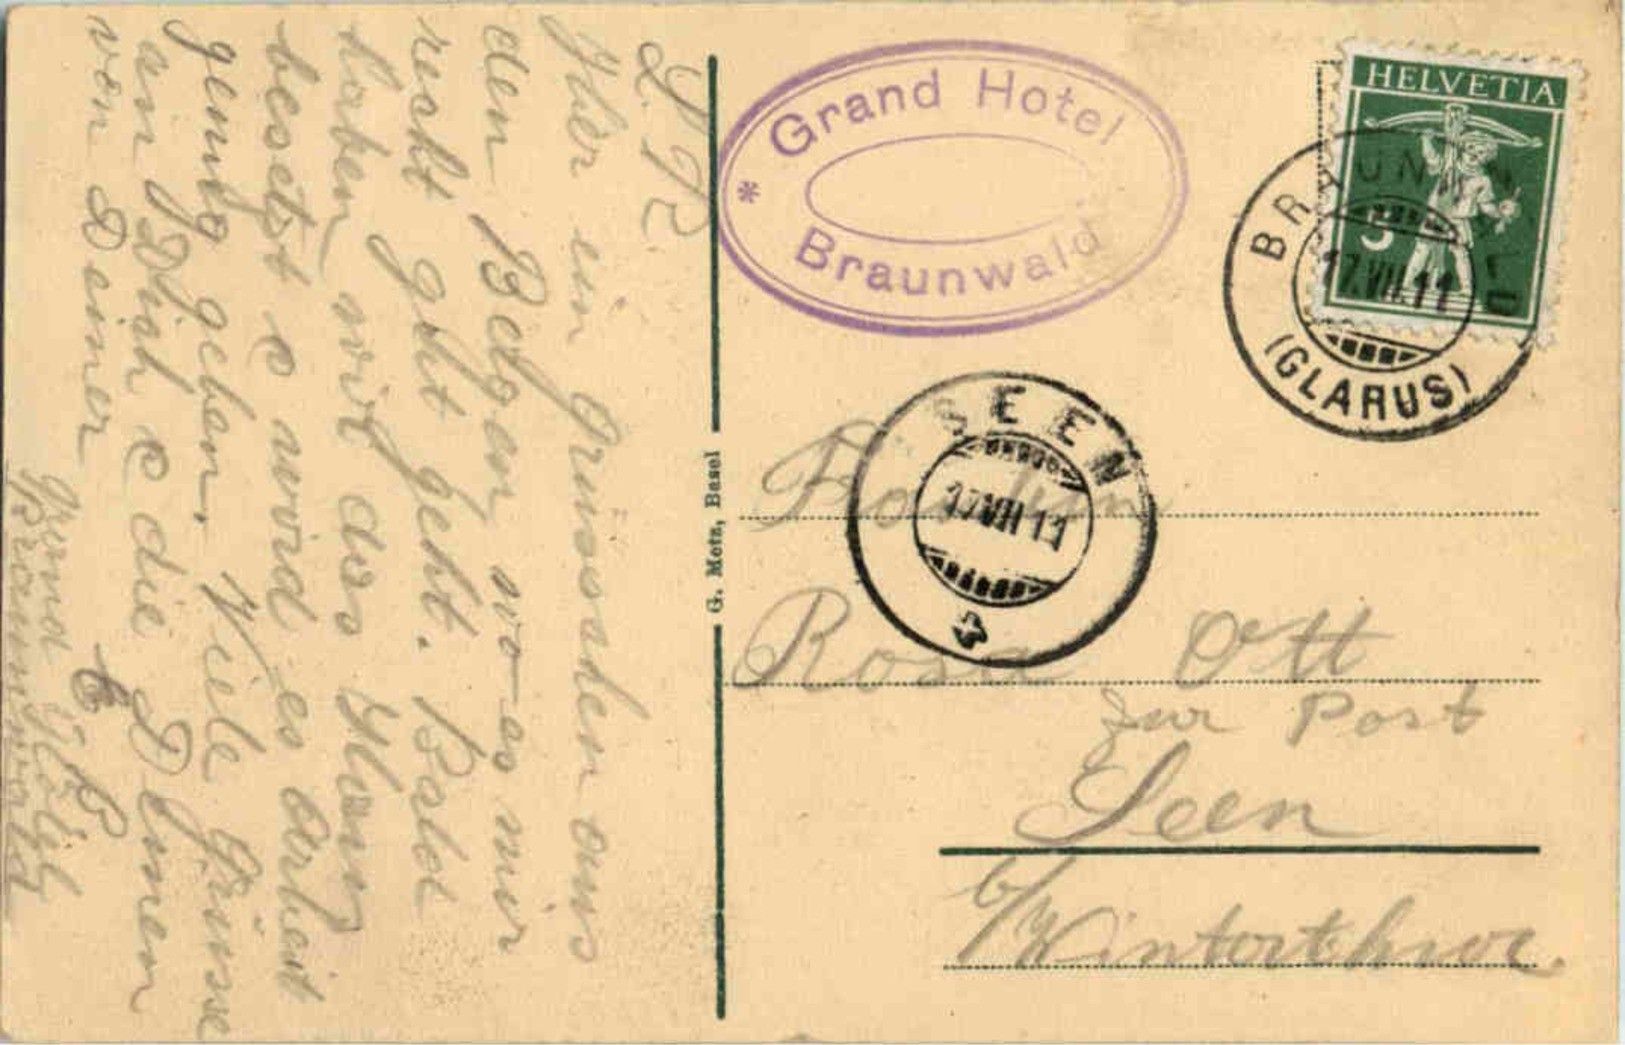 L. R.
Hier ein Grüsschen aus
den Bergen wo es mir
recht gut geht. Bald
haben wir das Haus
besetzt & wird es Arbeit
genug geben. Viele Grüsse
an Dich & die Deinen
von Deiner
Grand Hôtel
Braunwald
G. Metz, Basel
* Grand Hotel
Braunwald
HELVETIA
5
BRAUNWALD
17.VII.11
(GLARUS)
SEEN
17.VII.11
Fräulein
Rosa Ott
zur Post
Seen
b/Winterthur.